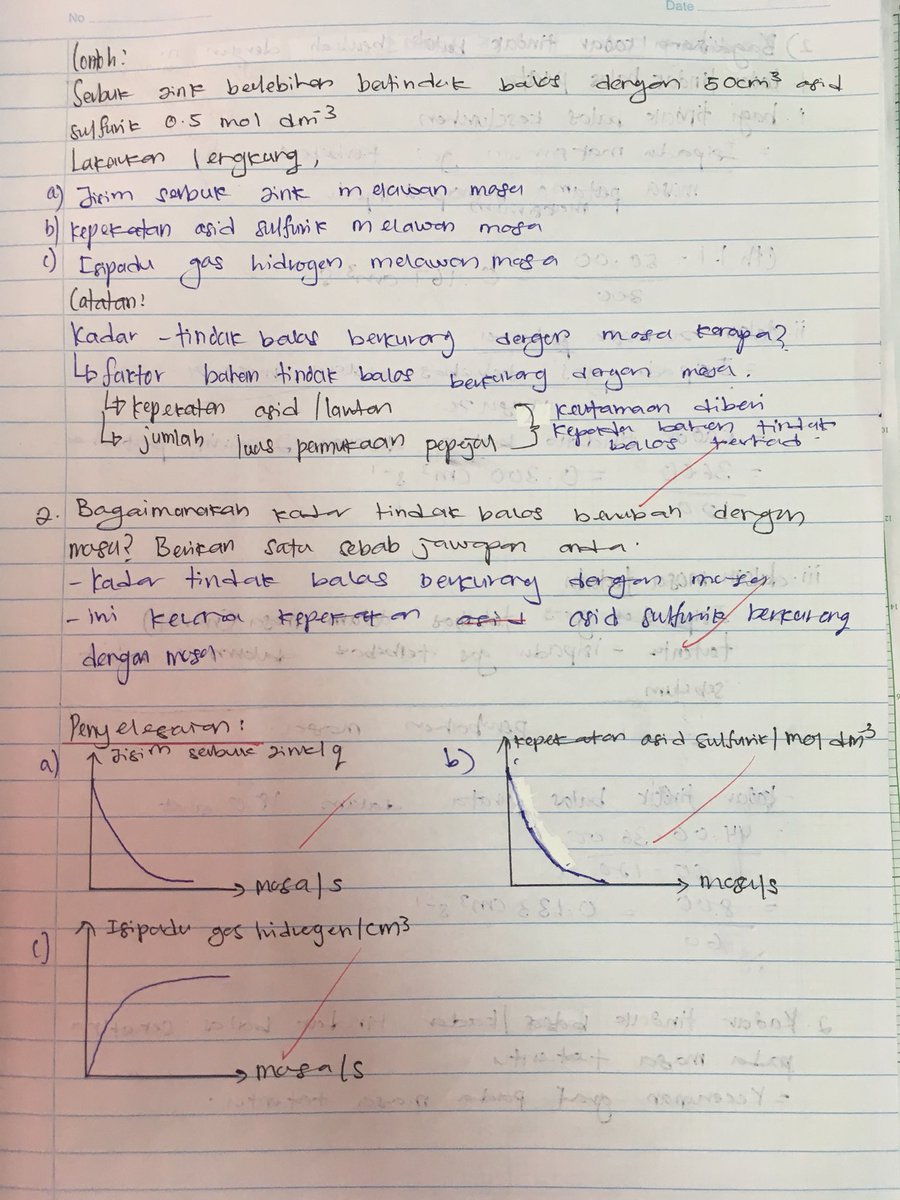 No
Date
Contoh:
Serbuk zink berlebihan bertindak balas dengan 50cm³ asid
sulfurik 0.5 mol dm⁻³
Lakarkan lengkung,
a) Jisim serbuk zink melawan masa
b) kepekatan asid sulfurik melawan masa
c) Isipadu gas hidrogen melawan masa
Catatan:
Kadar tindak balas berkurang dengan masa kerapa?
↳ faktor bahan tindak balas berkurang dengan masa.
↳ kepekatan asid / larutan } keutamaan diberi
↳ jumlah luas permukaan pepejal } kepada bahan tindak
balas
2. Bagaimanakah kadar tindak balas berubah dengan
masa? Berikan satu sebab jawapan anda.
- kadar tindak balas berkurang dengan masa
- ini kerana kepekatan asid asid sulfurik berkurang
dengan masa
Penyelesaian:
a) Jisim serbuk zink/g
b) kepekatan asid sulfurik/mol dm⁻³
masa/s
masa/s
c) Isipadu gas hidrogen/cm³
masa/s